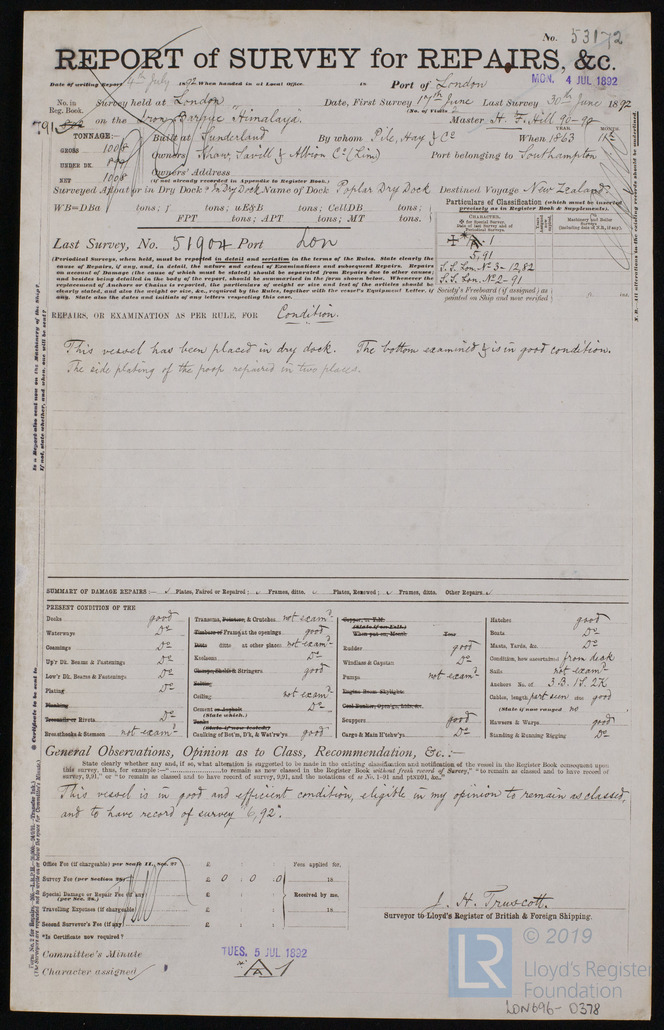 No. 53172
REPORT of SURVEY for REPAIRS, &c.
Date of writing Report 4th July 1892 When handed in at Local Office. 18 Port of London
MON. 4 JUL 1892
No. in Reg. Book. Survey held at London Date, First Survey 17th June Last Survey 30th June 1892
(No. of Visits 2
791 on the Iron Barque "Himalaya" Master H. F. Hill 90-92
TONNAGE:- Built at Sunderland By whom Pile, Hay & Co When 1863
YEAR. MONTH.
GROSS 1008 Owners Shaw, Savill & Albion Co (Lim) Port belonging to Southampton
UNDER DK.
NET 1008 Owners' Address
(if not already recorded in Appendix to Register Book.)
Surveyed Afloat or in Dry Dock? In Dry Dock Name of Dock Poplar Dry Dock Destined Voyage New Zealand
WB=DBa tons; f tons; uE&B tons; CellDB tons;
FPT tons; APT tons; MT tons.
Particulars of Classification (which must be inserted precisely as in Register Book & Supplements).
Last Survey, No. 51904 Port Lon
✠ A 1
5,91
S.S. Lon. No 3-12,82
S.S. Lon. No 2-91
Society's Freeboard (if assigned) as painted on Ship and now verified
(Periodical Surveys, when held, must be reported in detail and seriatim in the terms of the Rules. State clearly the
cause of Repairs, if any, and, in detail, the nature and extent of Examinations and subsequent Repairs. Repairs
on account of Damage (the cause of which must be stated) should be separated from Repairs due to other causes;
and besides being detailed in the body of the report, should be summarized in the form shown below. Whenever the
replacement of Anchors or Chains is reported, the particulars of weight or size and test of the articles should be
clearly stated, and also the weight or size, &c., required by the Rules, together with the vessel's Equipment Letter, if
any. State also the dates and initials of any letters respecting this case.
REPAIRS, OR EXAMINATION AS PER RULE, FOR Condition.
This vessel has been placed in dry dock. The bottom examined & is in good condition.
The side plating of the poop repaired in two places.
SUMMARY OF DAMAGE REPAIRS:— Plates, Faired or Repaired; Frames, ditto. Plates, Renewed; Frames, ditto. Other Repairs
PRESENT CONDITION OF THE
Decks good
Waterways Do
Coamings Do
Up'r Dk. Beams & Fastenings Do
Low'r Dk. Beams & Fastenings Do
Plating Do
Planking
Treenails or Rivets Do
Breasthooks & Stemson not examd
Transoms, Pointers, & Crutches not examd
Timbers or Frames at the openings good
Ditto ditto at other places not examd
Keelsons Do
Clamps, Shelf & Stringers good
Salting
Ceiling not examd
Cement or Asphalt Do
(State which.)
Tanks
(State if now tested)
Caulking of Bot'm, D'k, & Wat'rw'ys good
Copper, or Y.M.
(State if on Felt)
When put on, Month Year
Rudder good
Windlass & Capstan Do
Pumps not examd
Engine Room Skylights
Coal Bunker, Open'gs, Lids, &c.
Scuppers good
Cargo & Main H'tchw'ys Do
Hatches good
Boats Do
Masts, Yards, &c. Do
Condition, how ascertained from deck
Sails not examd
Anchors No. of 3.B. 1S. 2K
Cables, length part seen size good
(State if now ranged no)
Hawsers & Warps good
Standing & Running Rigging Do
General Observations, Opinion as to Class, Recommendation, &c.:—
State clearly whether any, and if so, what alteration is suggested to be made in the existing classification and notification of the vessel in the Register Book consequent upon
this survey, thus, for example:— " to remain as now classed in the Register Book without fresh record of Survey," "to remain as classed and to have record of
survey, 9,91," or "to remain as classed and to have record of survey, 9,91, and the notations of ss No. 1-91 and ptNB91, &c."
This vessel is in good and efficient condition, eligible in my opinion to remain as classed,
and to have record of survey "6,92".
Office Fee (if chargeable) per Scale II., Sec. 27 £ : : Fees applied for,
Survey Fee (per Section 28) £ 0 : 0 : 0 18
Special Damage or Repair Fee (if any) £ : : Received by me,
(per Sec. 28.)
Travelling Expenses (if chargeable) £ : : 18
Second Surveyor's Fee (if any) £ : :
J. H. Truscott.
Surveyor to Lloyd's Register of British & Foreign Shipping.
*Is Certificate now required?
Committee's Minute TUES. 5 JUL 1892
Character assigned A 1
LR
© 2019
Lloyd's Register
Foundation
LON696-0378